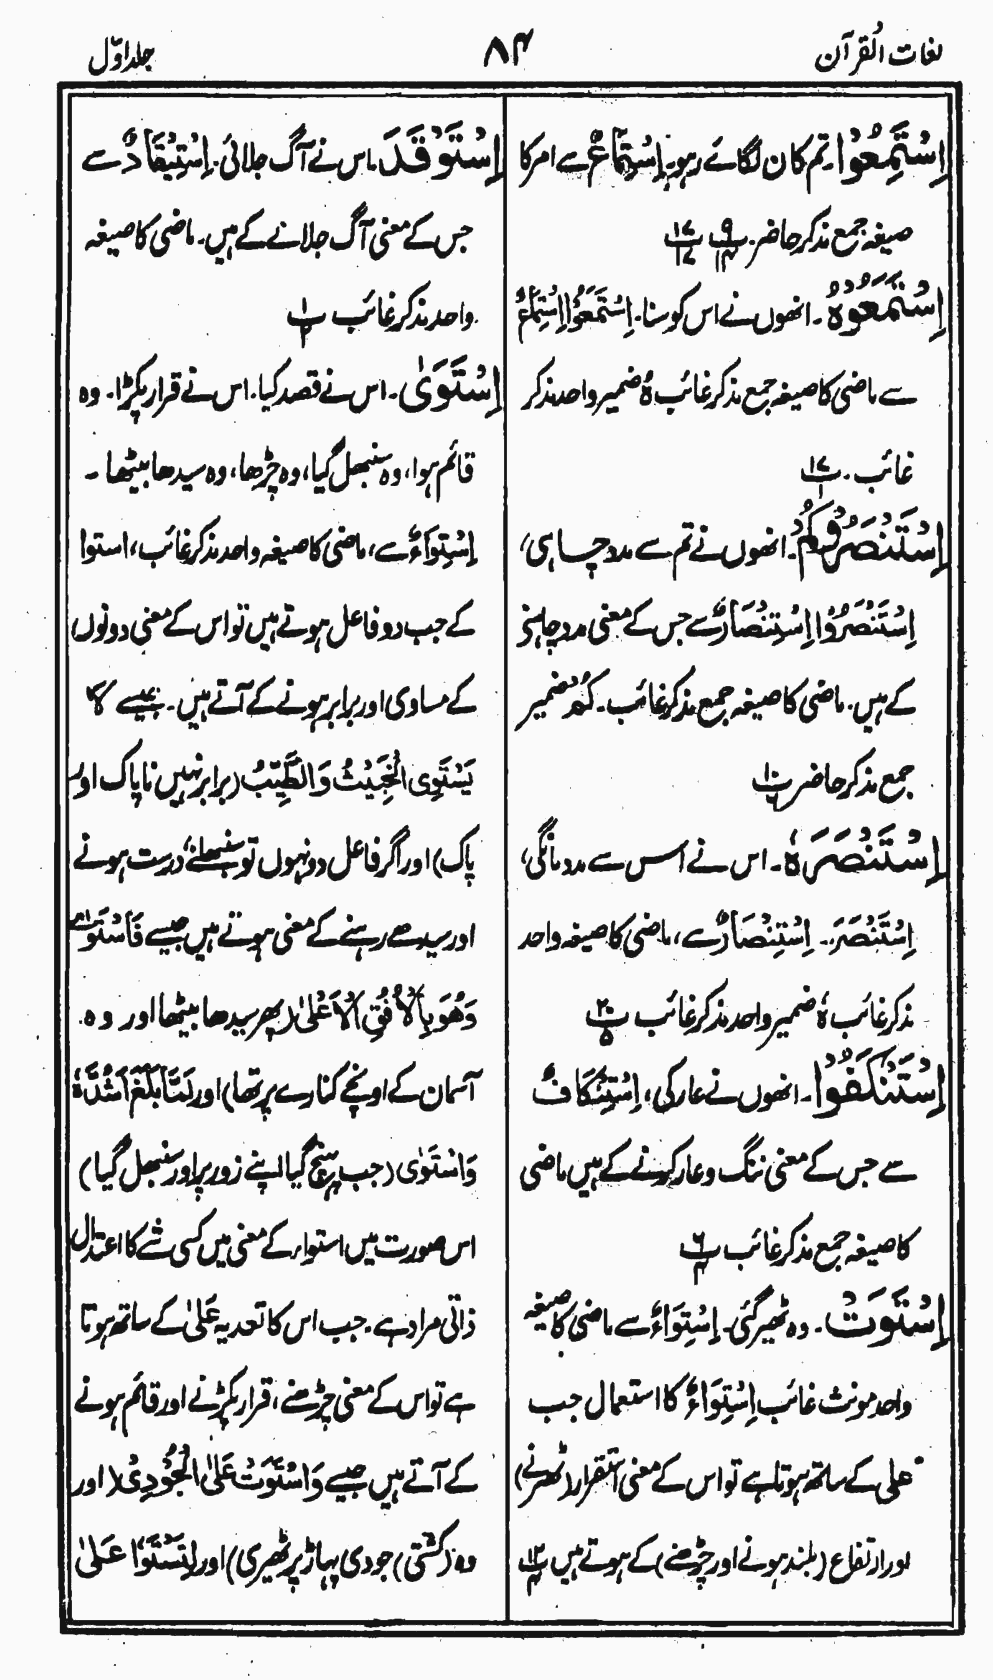 لغات القرآن
۸۴
جلد اوّل
اِسْتَمِعُوْا۔ تم کان لگائے رہو۔ اِسْتِمَاعٌ سے امر کا
صیغہ جمع مذکر حاضر۔ پ۹ ۱۴ پ۱۷ ۱۷
اِسْتَمَعُوْهُ۔ انھوں نے اس کو سنا۔ اِسْتَمَعُوْا اِسْتِمَاعٌ
سے ماضی کا صیغہ جمع مذکر غائب ہٗ ضمیر واحد مذکر
غائب۔ پ۱۷ ۱
اِسْتَنْصَرُوْكُمْ۔ انھوں نے تم سے مدد چاہی،
اِسْتَنْصَرُوْا اِسْتِنْصَارٌ سے جس کے معنی مدد چاہنے
کے ہیں۔ ماضی کا صیغہ جمع مذکر غائب۔ کُمْ ضمیر
جمع مذکر حاضر پ۱۰ ۶
اِسْتَنْصَرَهٗ۔ اس نے اس سے مدد مانگی،
اِسْتَنْصَرَ۔ اِسْتِنْصَارٌ سے، ماضی کا صیغہ واحد
مذکر غائب ہٗ ضمیر واحد مذکر غائب پ۲۰ ۵
اِسْتَنْكَفُوْا۔ انھوں نے عار کی، اِسْتِنْكَافٌ
سے جس کے معنی ننگ و عار کرنے کے ہیں ماضی
کا صیغہ جمع مذکر غائب پ۶ ۴
اِسْتَوَتْ۔ وہ ٹھیر گئی۔ اِسْتِوَاءٌ سے ماضی کا صیغہ
واحد مونث غائب اِسْتِوَاءٌ کا استعمال جب
علی کے ساتھ ہوتا ہے تو اس کے معنی استقرار (ٹھرنے)
اور ارتفاع (بلند ہونے اور چڑھنے) کے ہوتے ہیں پ۱۲ ۴
اِسْتَوْقَدَ۔ اس نے آگ جلائی۔ اِسْتِيْقَادٌ سے
جس کے معنی آگ جلانے کے ہیں۔ ماضی کا صیغہ
واحد مذکر غائب پ۱ ۲
اِسْتَوٰی۔ اس نے قصد کیا۔ اس نے قرار پکڑا۔ وہ
قائم ہوا، وہ سنبھل گیا، وہ چڑھا، وہ سیدھا بیٹھا۔
اِسْتِوَاءٌ سے، ماضی کا صیغہ واحد مذکر غائب، استوا
کے جب دو فاعل ہوتے ہیں تو اس کے معنی دونوں
کے مساوی اور برابر ہونے کے آتے ہیں۔ جیسے لَا
يَسْتَوِى الْخَبِيْثُ وَالطَّيِّبُ (برابر نہیں ناپاک اور
پاک) اور اگر فاعل دو نہوں تو سنبھلنے، درست ہونے
اور سیدھے رہنے کے معنی ہوتے ہیں جیسے فَاسْتَوٰى
وَهُوَ بِالْاُفُقِ الْاَعْلٰى (پھر سیدھا بیٹھا اور وہ
آسمان کے اونچے کنارے پر تھا) اور لَمَّا بَلَغَ اَشُدَّهٗ
وَاسْتَوٰى (جب پہنچ گیا اپنے زور پر اور سنبھل گیا)
اس صورت میں استواء کے معنی میں کسی شے کا اعتدال
ذاتی مراد ہے۔ جب اس کا تعدیہ عَلٰی کے ساتھ ہوتا
ہے تو اس کے معنی چڑھنے، قرار پکڑنے اور قائم ہونے
کے آتے ہیں جیسے وَاسْتَوَتْ عَلَى الْجُوْدِىِّ (اور
وہ (کشتی) جودی پہاڑ پر ٹھیری) اور لِتَسْتَوٗا عَلٰى